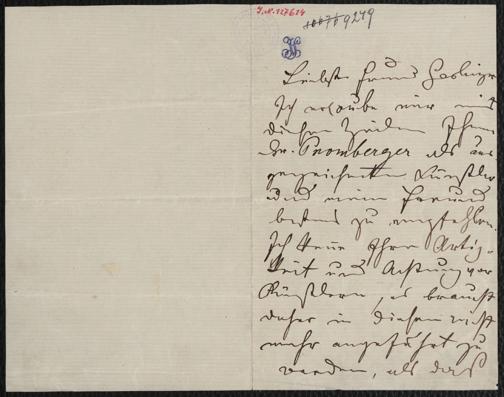 I.N. 127614
9219
Liebster Freund Haslinger
Ich erlaube mir mit
diesen Zeilen Ihnen
Hr. Promberger als aus
gezeichneten Künstler
und mein Freund
bestens zu empfehlen.
Ich kenne Ihre Artig-
keit und Achtung vor
Künstlern, es braucht
daher in diesem nicht
mehr angeführt zu
werden, als daß